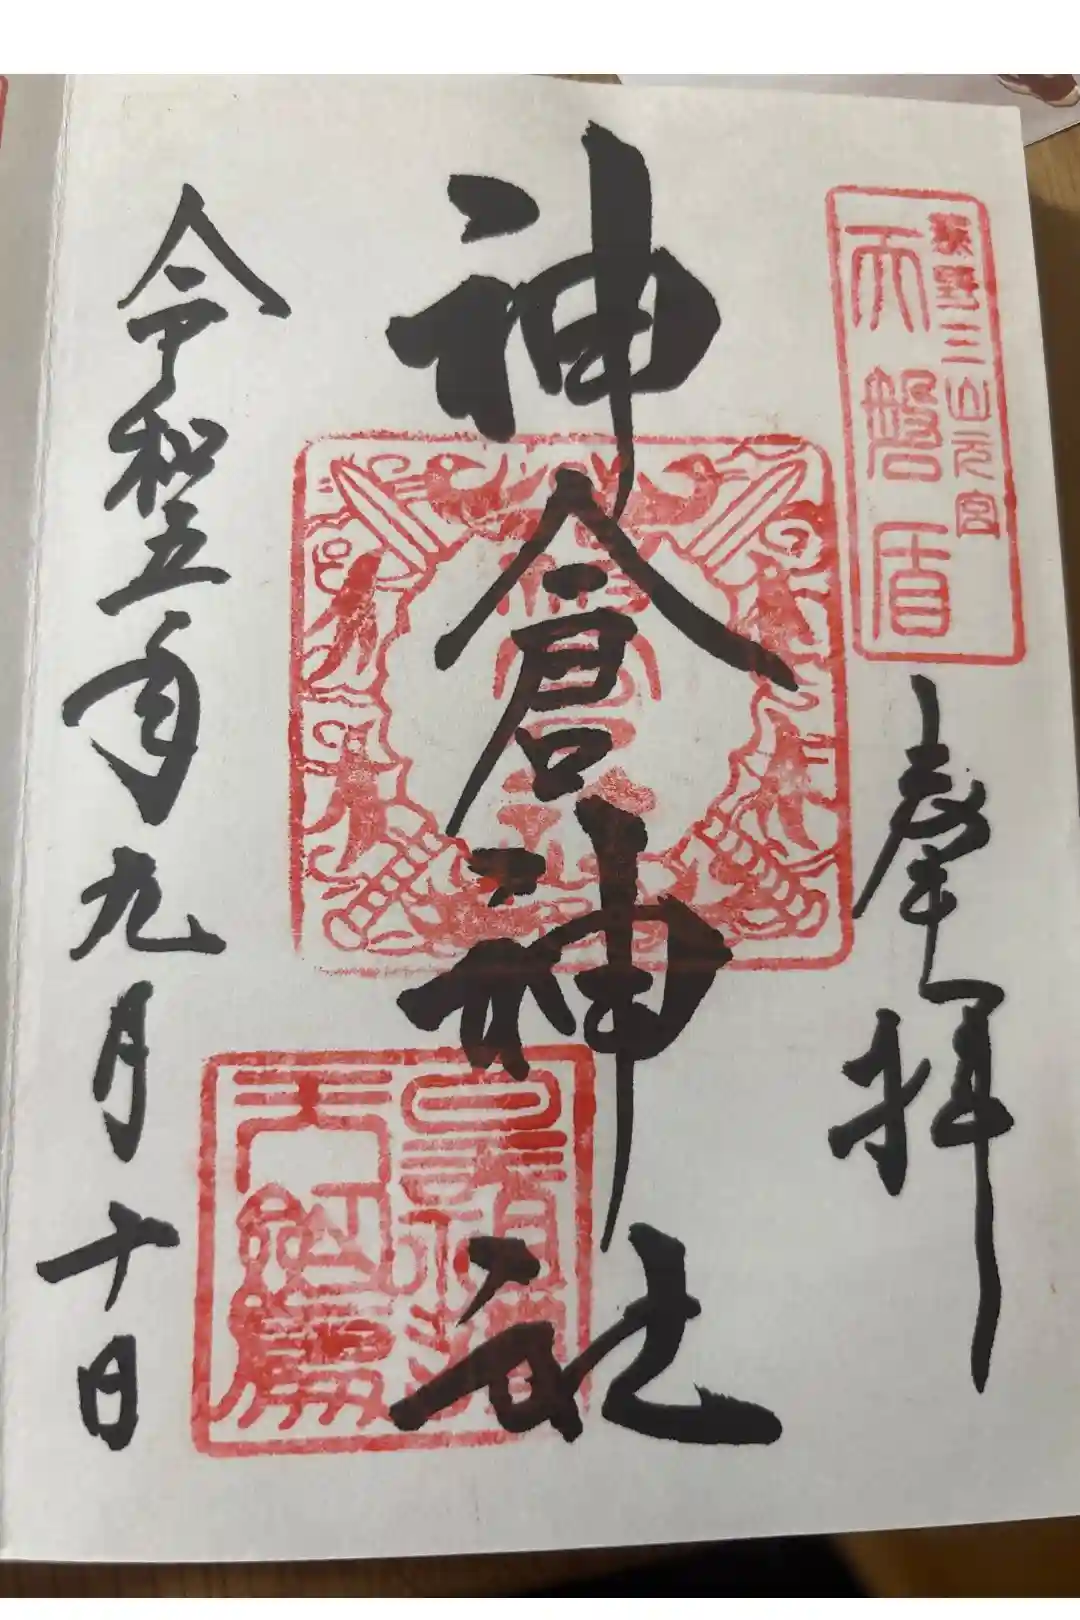 熊野三山元宮
天磐盾
奉拝
神倉神社
令和五年九月十日